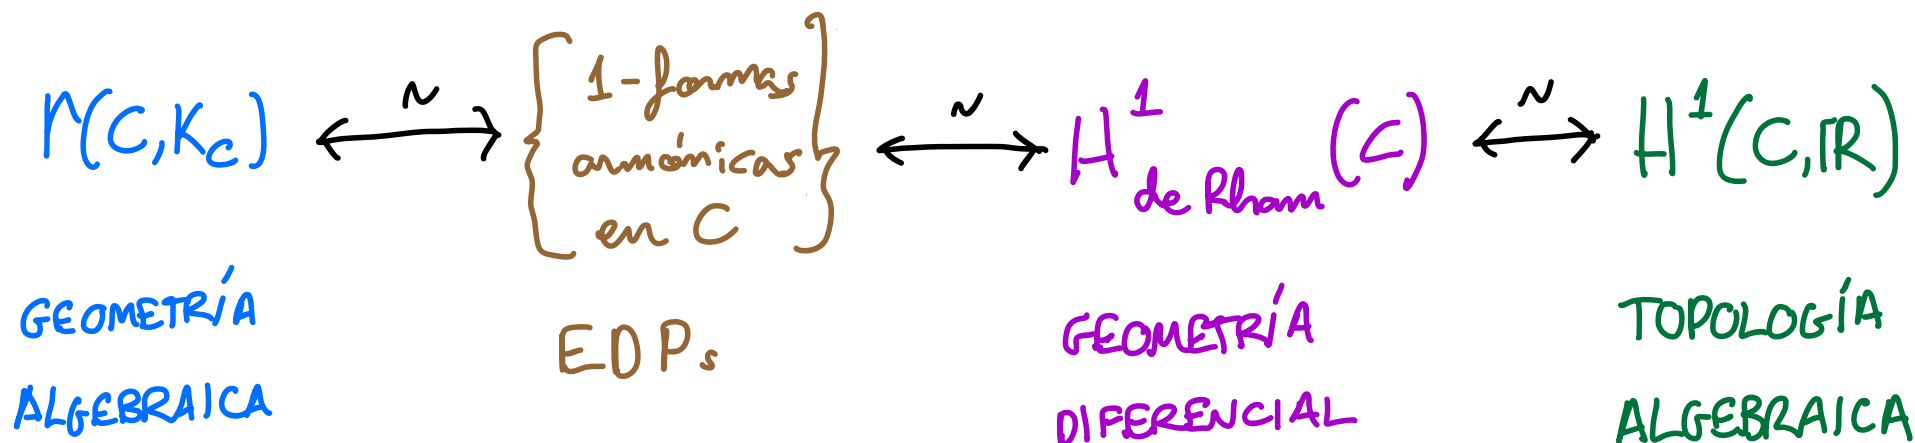 Γ(C,K_C) ~ ⟷ { 1-formas armónicas en C } ~ ⟷ H^1_{de Rham}(C) ~ ⟷ H^1(C,ℝ)
GEOMETRÍA ALGEBRAICA
EDPs
GEOMETRÍA DIFERENCIAL
TOPOLOGÍA ALGEBRAICA